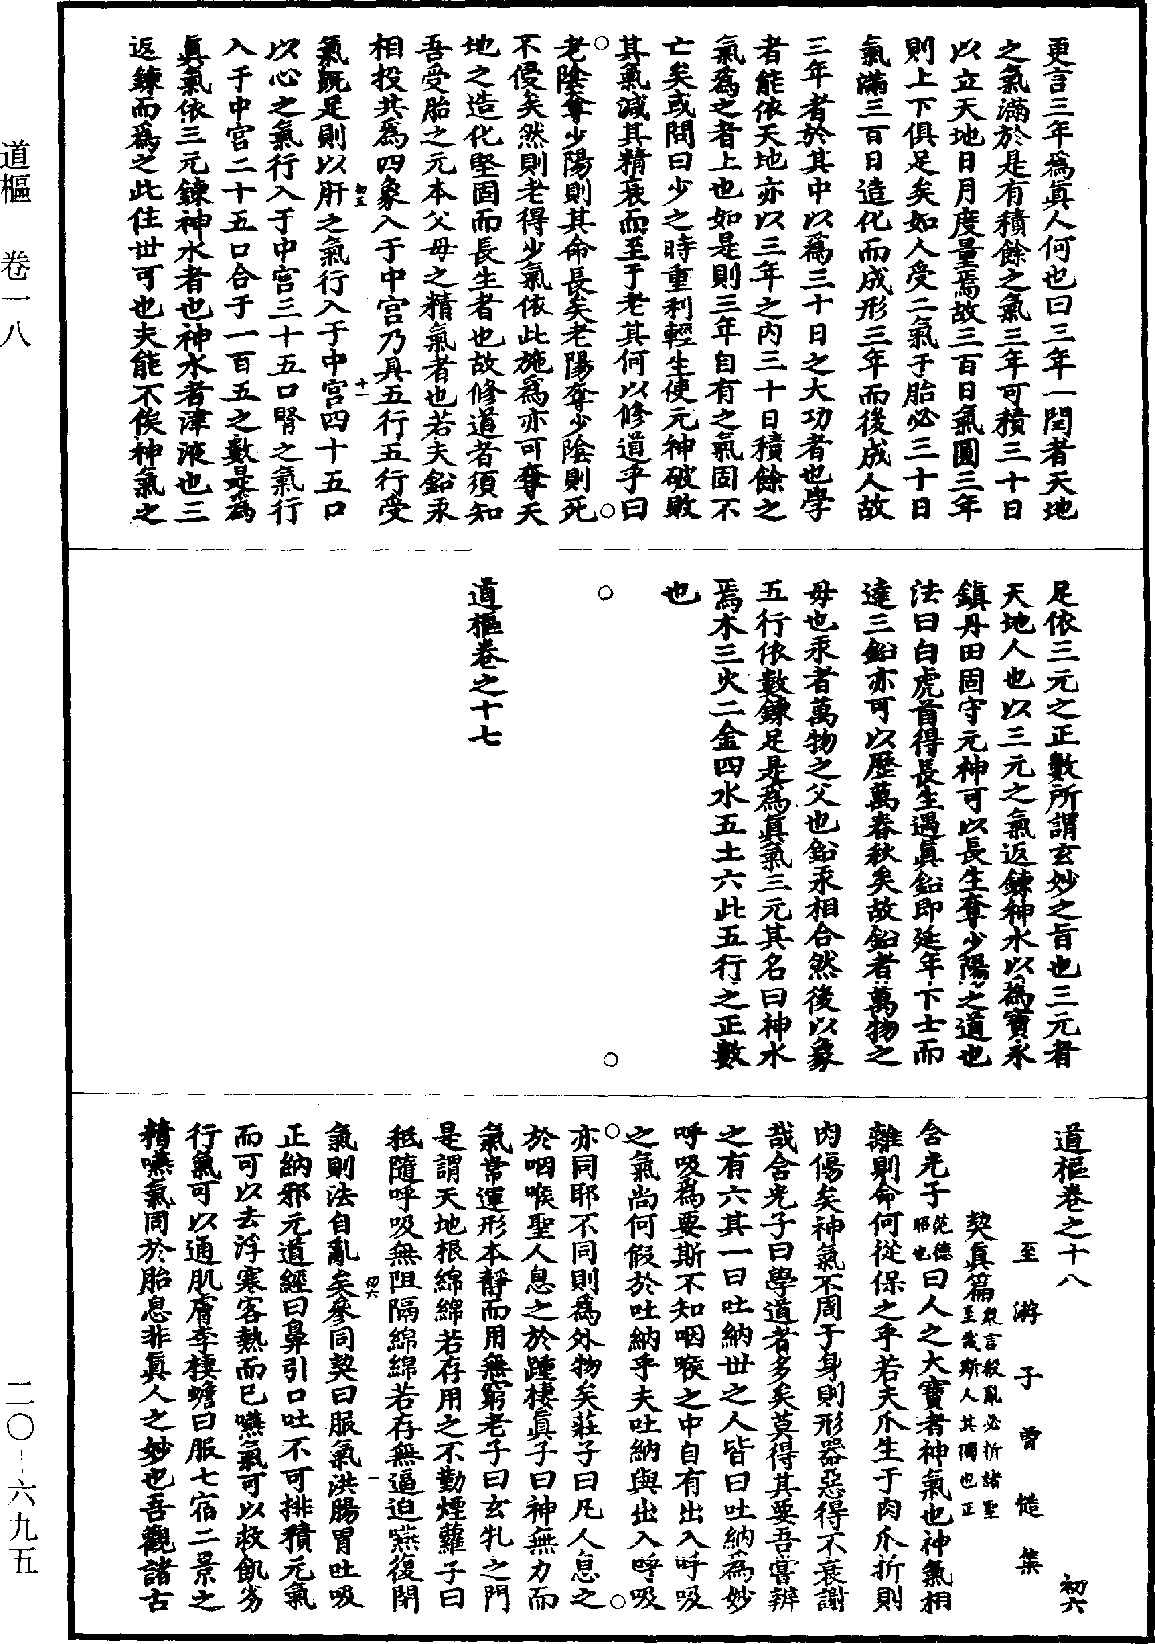 更言三年爲眞人何也曰三年一閏者天地
之氣滿於是有積餘之氣三年可積三十日
以立天地日月度量焉故三百日氣圓三年
則上下俱足矣如人受二氣于胎必三十日
氣滿三百日造化而成形三年而後成人故
三年者於其中以爲三十日之大功者也學
者能依天地亦以三年之內三十日積餘之
氣爲之者上也如是則三年自有之氣固不
亡矣或問曰少之時重利輕生使元神破敗
其氣減其精衰而至于老其何以修道乎曰
老陰奪少陽則其命長矣老陽奪少陰則死
不侵矣然則老得少氣依此施爲亦可奪天
地之造化堅固而長生者也故修道者須知
吾受胎之元本父母之精氣者也若夫鉛汞
相投共爲四象入于中宮乃具五行五行受
初五
十一
氣既足則以肝之氣行入于中宮四十五口
以心之氣行入于中宮三十五口腎之氣行
入于中宮二十五口合于一百五之數是爲
眞氣依三元鍊神水者也神水者津液也三
返鍊而爲之此住世可也夫能不俟神氣之
足依三元之正數所謂玄妙之旨也三元者
天地人也以三元之氣返鍊神水以爲寶永
鎭丹田固守元神可以長生奪少陽之道也
法曰白虎首得長生遇眞鉛即延年下士而
達三鉛亦可以歷萬春秋矣故鉛者萬物之
母也汞者萬物之父也鉛汞相合然後以象
五行依數鍊足是爲眞氣三元其名曰神水
焉木三火二金四水五土六此五行之正數
也
道樞卷之十七
道樞卷之十八
初六
至游子曾慥集
契眞篇
衆言殽亂必折諸聖
至哉斯人其獨也正
含光子
范德
昭也
曰人之大寶者神氣也神氣相
離則命何從保之乎若夫爪生于肉爪折則
內傷矣神氣不周于身則形器惡得不衰謝
哉含光子曰學道者多矣莫得其要吾嘗辨
之有六其一曰吐納世之人皆曰吐納爲妙
呼吸爲要斯不知咽喉之中自有出入呼吸
之氣尚何假於吐納乎夫吐納與出入呼吸
亦同耶不同則爲外物矣莊子曰凡人息之
於咽喉聖人息之於踵棲眞子曰神無力而
氣常運形本靜而用無窮老子曰玄牝之門
是謂天地根綿綿若存用之不勤煙蘿子曰
秖隨呼吸無阻隔綿綿若存無逼迫嚥復閉
初六
一
氣則法自亂矣參同契曰服氣洪腸胃吐吸
正納邪元道經曰鼻引口吐不可排積元氣
而可以去浮寒客熱而已嚥氣可以救飢劣
行氣可以通肌膚李棲蟾曰服七宿二景之
精嚥氣同於胎息非眞人之妙也吾觀諸古
道樞　卷一八
二〇--六九五